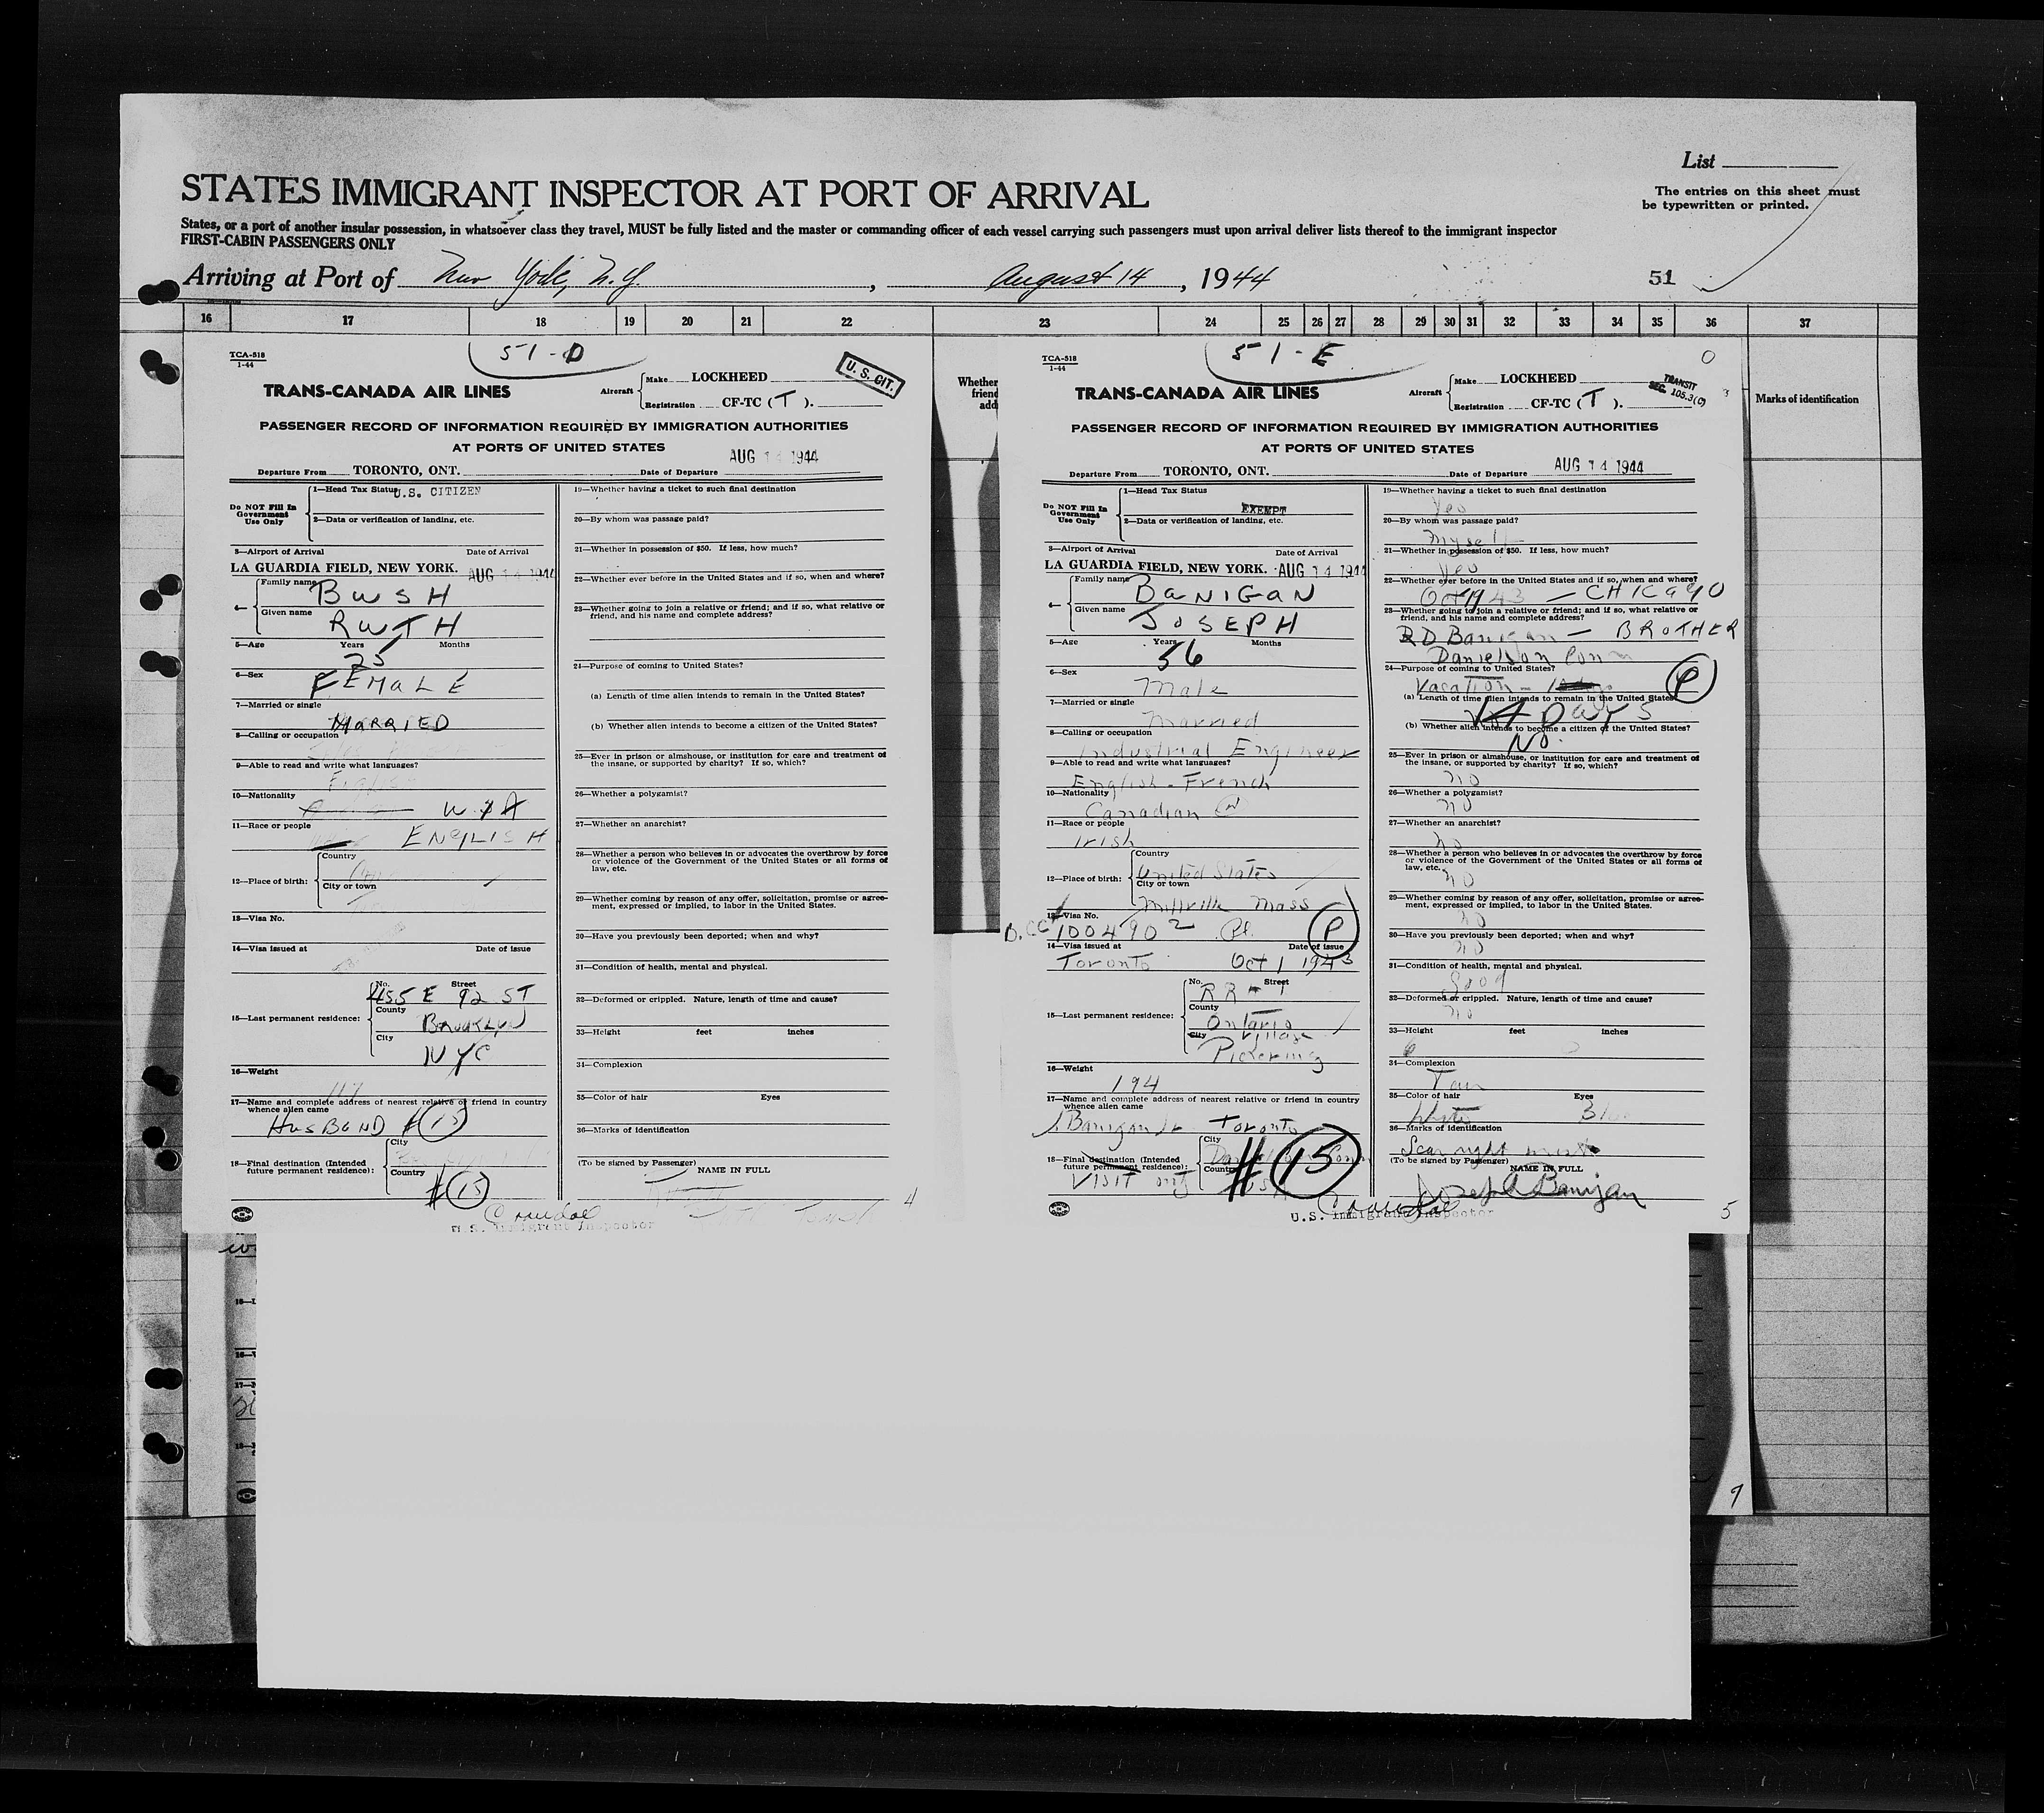 List
STATES IMMIGRANT INSPECTOR AT PORT OF ARRIVAL
The entries on this sheet must
be typewritten or printed.
States, or a port of another insular possession, in whatsoever class they travel, MUST be fully listed and the master or commanding officer of each vessel carrying such passengers must upon arrival deliver lists thereof to the immigrant inspector
FIRST-CABIN PASSENGERS ONLY
Arriving at Port of New York, N.Y., August 14, 1944
51
16 17 18 19 20 21 22 23 24 25 26 27 28 29 30 31 32 33 34 35 36 37
Whether
friend
add
Marks of identification
TCA-518
1-44
51-D
U. S. CIT.
TRANS-CANADA AIR LINES
Aircraft
Make LOCKHEED
Registration CF-TC (T).
PASSENGER RECORD OF INFORMATION REQUIRED BY IMMIGRATION AUTHORITIES
AT PORTS OF UNITED STATES
Departure From TORONTO, ONT. Date of Departure AUG 14 1944
Do NOT Fill In
Government
Use Only
1—Head Tax Status U.S. CITIZEN
2—Data or verification of landing, etc.
3—Airport of Arrival Date of Arrival
LA GUARDIA FIELD, NEW YORK. AUG 14 1944
4—
Family name BUSH
Given name RUTH
5—Age Years 25 Months
6—Sex FEMALE
7—Married or single
MARRIED
8—Calling or occupation
9—Able to read and write what languages?
10—Nationality USA
11—Race or people ENGLISH
12—Place of birth:
Country
City or town
13—Visa No.
14—Visa issued at Date of issue
15—Last permanent residence:
No. Street
455 E 92 ST
County
BROOKLYN
City
NYC
16—Weight
17—Name and complete address of nearest relative or friend in country
whence alien came
HUSBAND #15
18—Final destination (Intended
future permanent residence):
City
Country
#15
19—Whether having a ticket to such final destination
20—By whom was passage paid?
21—Whether in possession of $50. If less, how much?
22—Whether ever before in the United States and if so, when and where?
23—Whether going to join a relative or friend; and if so, what relative or
friend, and his name and complete address?
24—Purpose of coming to United States?
(a) Length of time alien intends to remain in the United States?
(b) Whether alien intends to become a citizen of the United States?
25—Ever in prison or almshouse, or institution for care and treatment of
the insane, or supported by charity? If so, which?
26—Whether a polygamist?
27—Whether an anarchist?
28—Whether a person who believes in or advocates the overthrow by force
or violence of the Government of the United States or all forms of
law, etc.
29—Whether coming by reason of any offer, solicitation, promise or agree-
ment, expressed or implied, to labor in the United States.
30—Have you previously been deported; when and why?
31—Condition of health, mental and physical.
32—Deformed or crippled. Nature, length of time and cause?
33—Height feet inches
34—Complexion
35—Color of hair Eyes
36—Marks of identification
(To be signed by Passenger)
NAME IN FULL
4
U.S. Immigrant Inspector
TCA-518
1-44
51-E
0
TRANSIT
SEC. 105.3(C)
TRANS-CANADA AIR LINES
Aircraft
Make LOCKHEED
Registration CF-TC (T).
PASSENGER RECORD OF INFORMATION REQUIRED BY IMMIGRATION AUTHORITIES
AT PORTS OF UNITED STATES
Departure From TORONTO, ONT. Date of Departure AUG 14 1944
Do NOT Fill In
Government
Use Only
1—Head Tax Status
EXEMPT
2—Data or verification of landing, etc.
3—Airport of Arrival Date of Arrival
LA GUARDIA FIELD, NEW YORK. AUG 14 1944
4—
Family name BANIGAN
Given name JOSEPH
5—Age Years 56 Months
6—Sex Male
7—Married or single
Married
8—Calling or occupation
Industrial Engineer
9—Able to read and write what languages?
English - French
10—Nationality
Canadian
11—Race or people
Irish
12—Place of birth:
Country
United States
City or town
Millville Mass
13—Visa No.
100490 2 P
14—Visa issued at Date of issue
Toronto Oct 1 1943
15—Last permanent residence:
No. Street
RR #1
County
Ontario
City Village
Pickering
16—Weight
194
17—Name and complete address of nearest relative or friend in country
whence alien came
J. Banigan Jr Toronto
18—Final destination (Intended
future permanent residence):
VISIT only
City
Country
#15
USA
19—Whether having a ticket to such final destination
Yes
20—By whom was passage paid?
Myself
21—Whether in possession of $50. If less, how much?
Yes
22—Whether ever before in the United States and if so, when and where?
Oct 1943 — CHICAGO
23—Whether going to join a relative or friend; and if so, what relative or
friend, and his name and complete address?
R D Banigan — BROTHER
Danielson Conn
24—Purpose of coming to United States?
Vacation - P
(a) Length of time alien intends to remain in the United States?
14 DAYS
(b) Whether alien intends to become a citizen of the United States?
No.
25—Ever in prison or almshouse, or institution for care and treatment of
the insane, or supported by charity? If so, which?
no
26—Whether a polygamist?
no
27—Whether an anarchist?
no
28—Whether a person who believes in or advocates the overthrow by force
or violence of the Government of the United States or all forms of
law, etc.
no
29—Whether coming by reason of any offer, solicitation, promise or agree-
ment, expressed or implied, to labor in the United States.
no
30—Have you previously been deported; when and why?
no
31—Condition of health, mental and physical.
good
32—Deformed or crippled. Nature, length of time and cause?
no
33—Height feet inches
6
34—Complexion
35—Color of hair Eyes
36—Marks of identification
Scar right
(To be signed by Passenger)
NAME IN FULL
Joseph Banigan
U.S. Immigrant Inspector
5
9